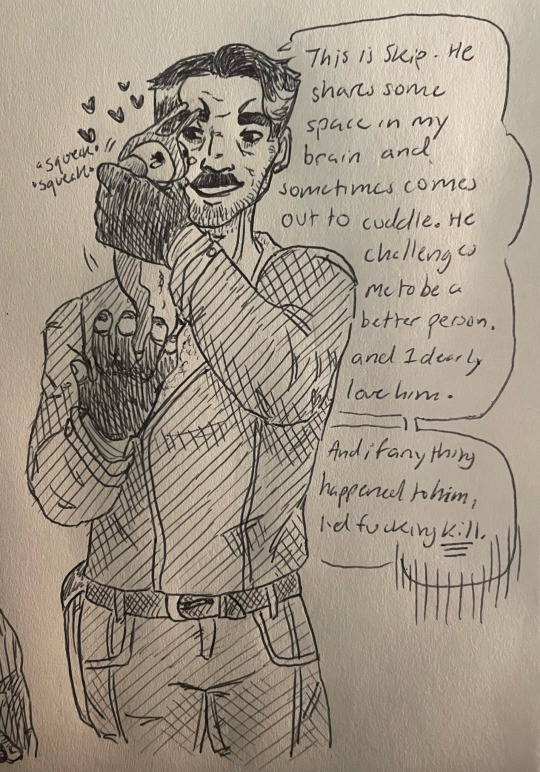 This is Skip. He
shares some
space in my
brain and
sometimes comes
out to cuddle. He
challenges
me to be a
better person.
and I dearly
love him.
And if anything
happened to him,
I'd fucking kill.
"squeak"
"squeak"